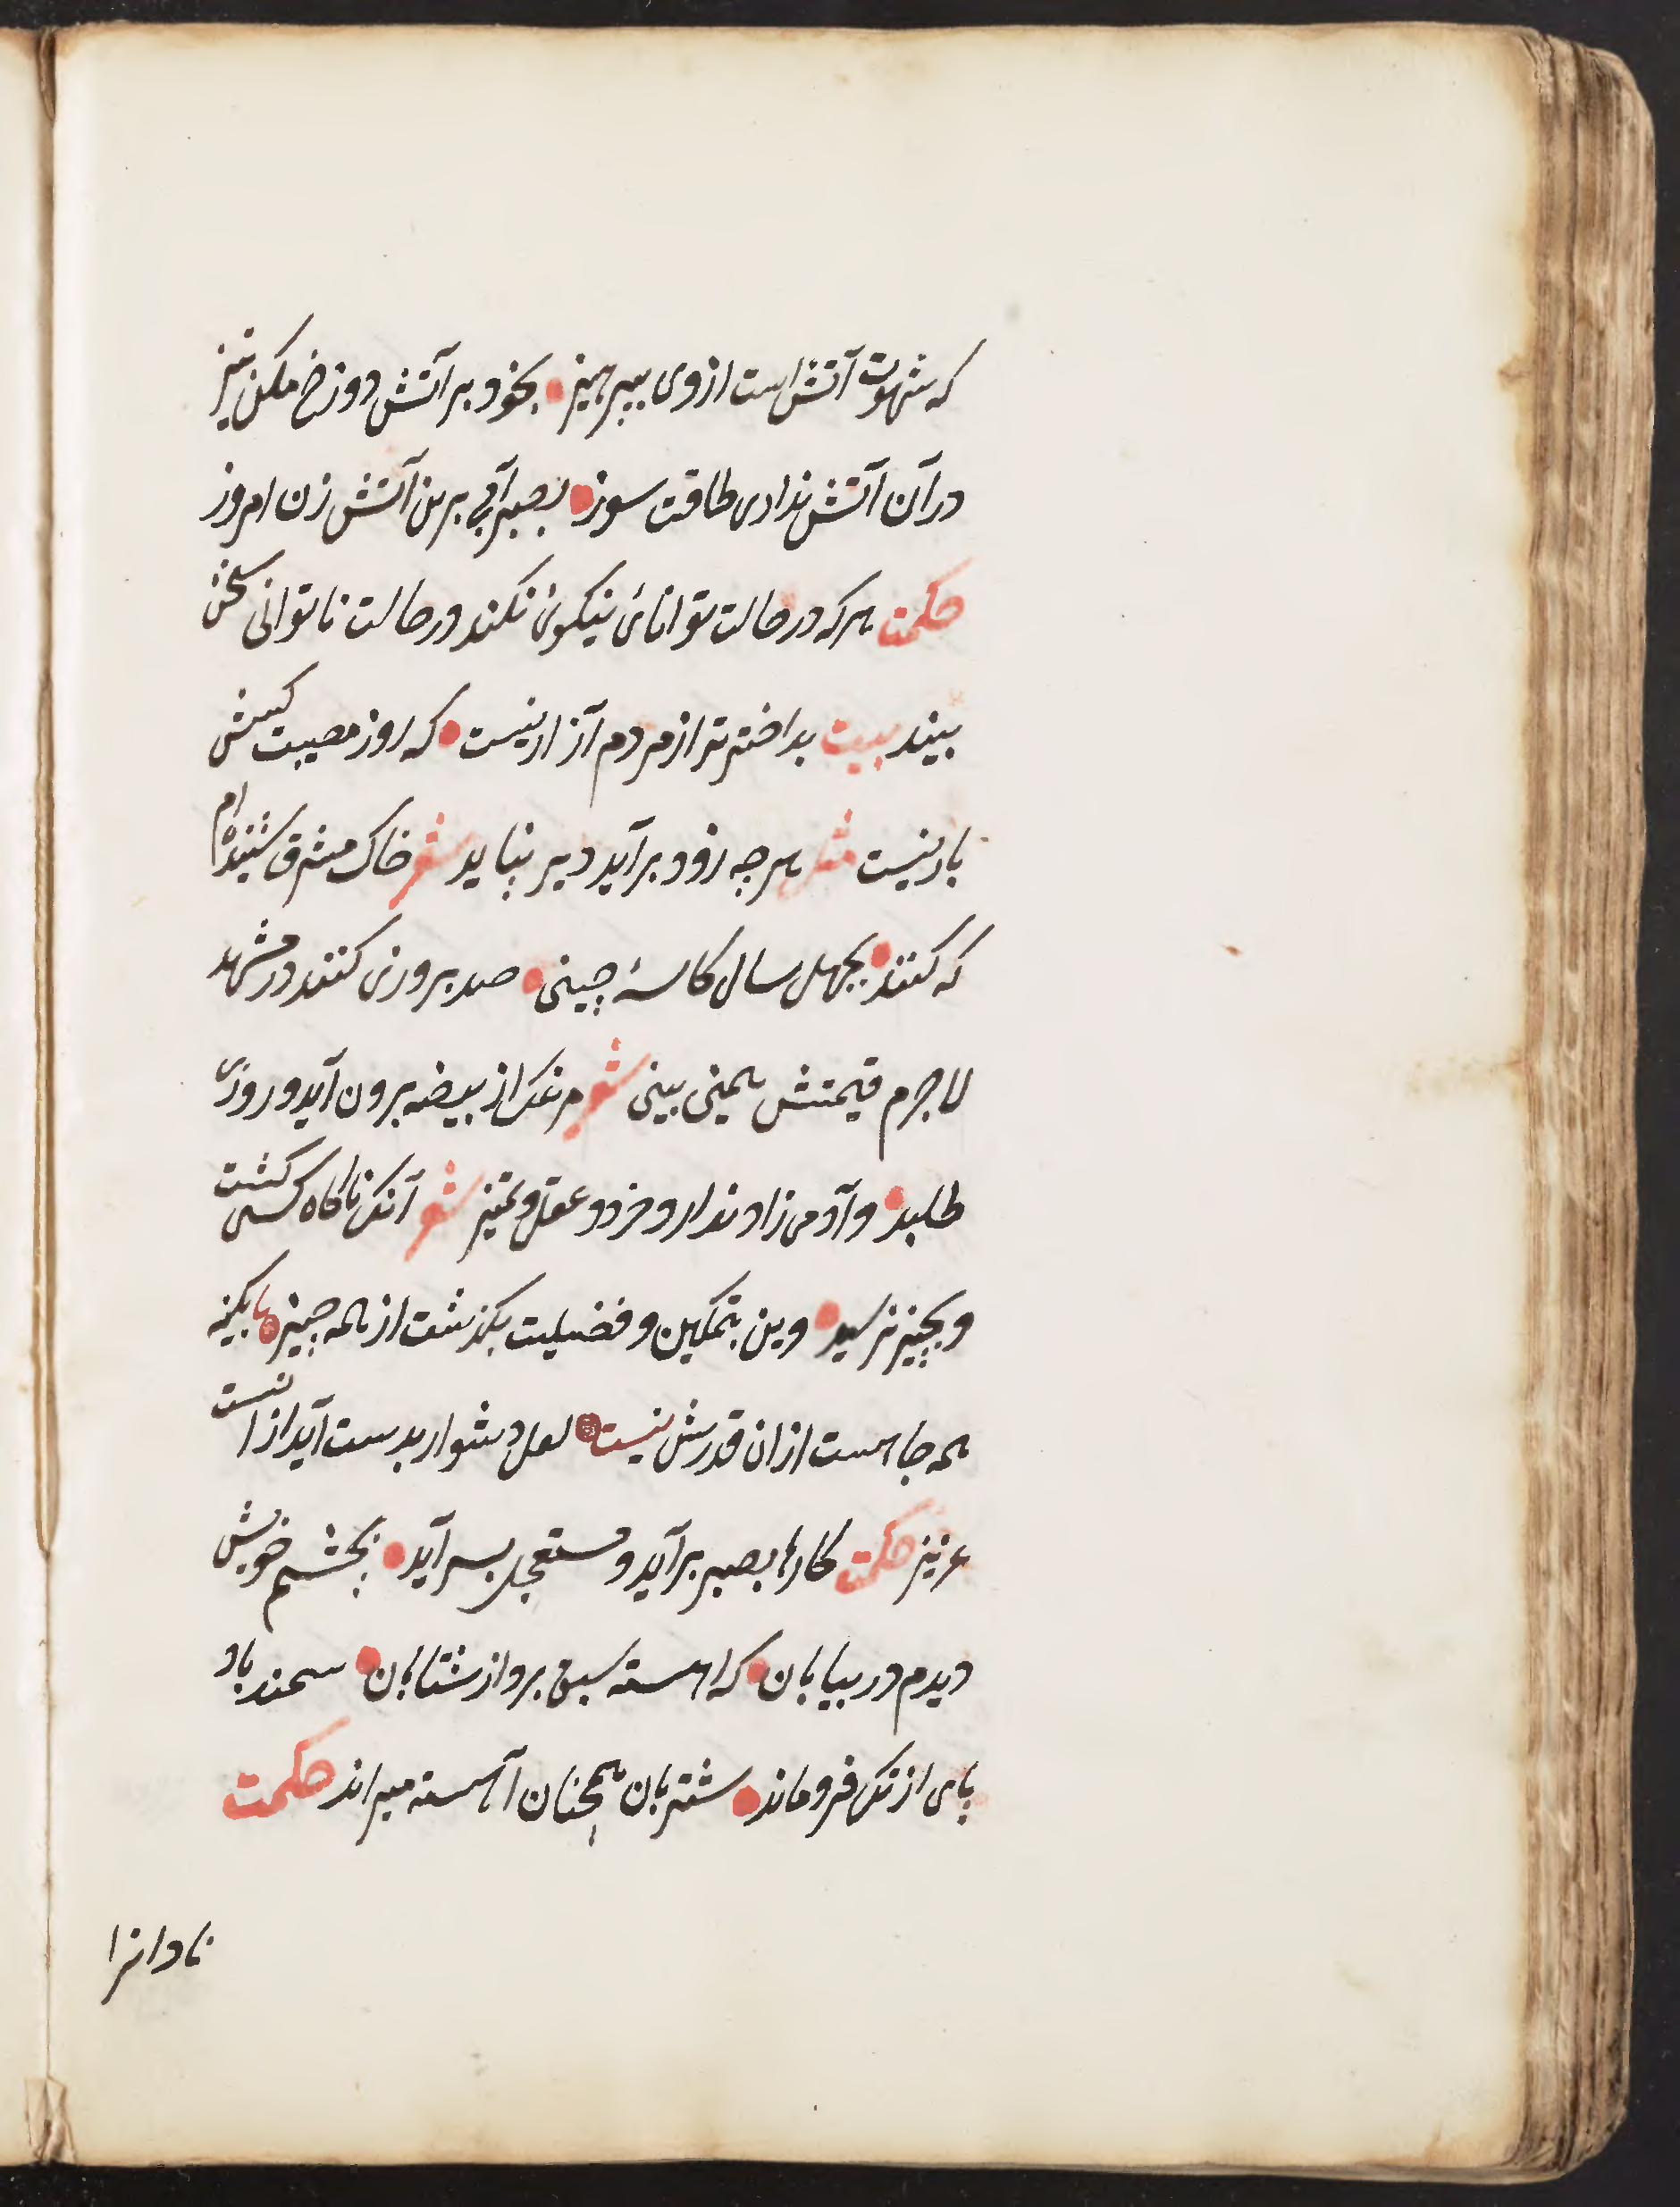 که شهوت آتش است از وی بپرهیز بخود بر آتش دوزخ مکن تیز
در آن آتش نداری طاقت سوز بصبر آبی برین آتش زن امروز
حکمت هر که در حالت توانائی نیکوئی نکند در حالت ناتوانی سختی
بیند بیت بد اختر تر از مردم آزار نیست که روز مصیبت کسش
یار نیست مثل هر چه زود برآید دیر نپاید شعر خاک مشرق شنیده‌ام
که کنند بچهل سال کاسهٔ چینی صد بروزی کنند در مشهد
لاجرم قیمتش همینی بینی شعر مرغک از بیضه برون آید و روزی
طلبد و آدمی زاد ندارد خرد و عقل و تمیز شعر آنک ناگاه کسی گشت
و بچیز نرسید وین بتمکین و فضیلت بگذشت از همه چیزها بگینه
همه جا هست ازان قدرش نیست لعل دشوار بدست آید از انست
عزیز حکمت کارها بصبر برآید و مستعجل بسر آید بچشم خویش
دیدم در بیابان که اهسته سبق برد از شتابان سمند باد
پای از تک فروماند شتربان همچنان آهسته میراند حکمت
نادانرا